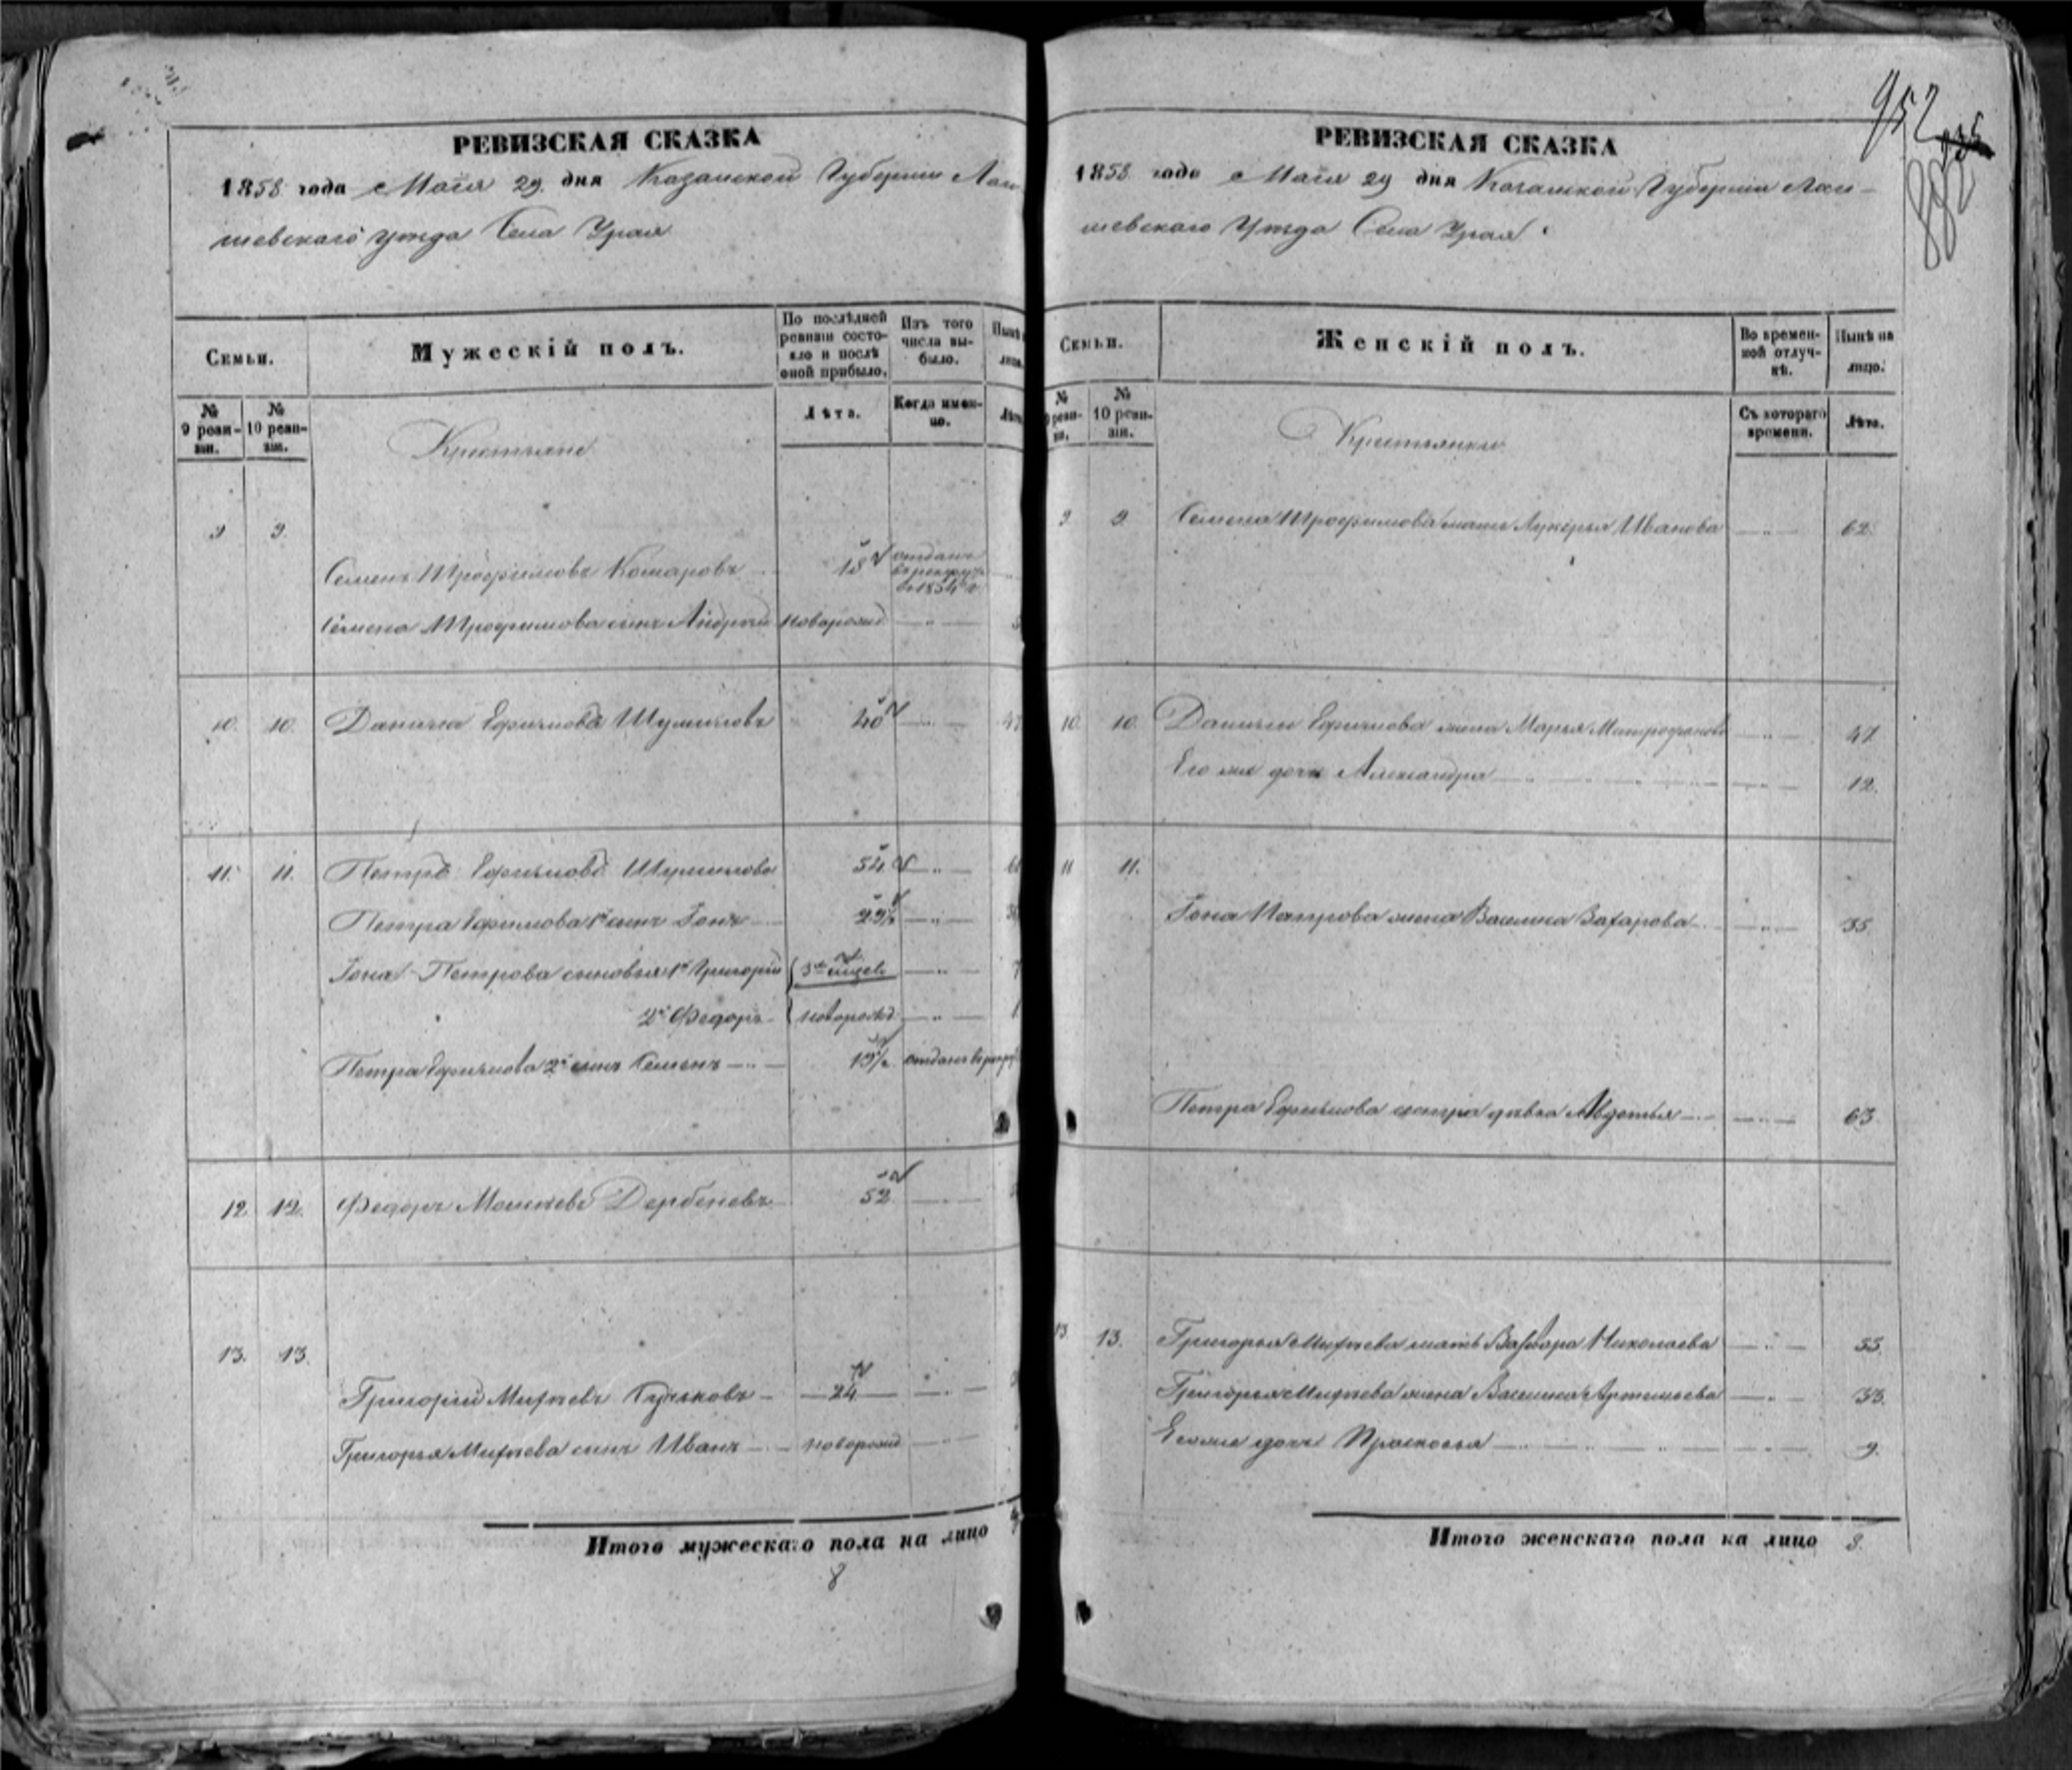 РЕВИЗСКАЯ СКАЗКА
1858 года Маія 29 дня Казанской Губерніи Лаи
шевскаго уѣзда Села Урая
Семьи.
Мужескій полъ.
По послѣдней ревизіи состояло и послѣ оной прибыло.
Изъ того числа выбыло.
№ 9 ревизіи.
№ 10 ревизіи.
Лѣта.
Когда именно.
Крестьяне
9 9.
Семенъ Трофимовъ Комаровъ 18 отданъ въ рекруты въ 1854 г
Семена Трофимова сынъ Андрей новорожд
10. 10. Данила Ефимовъ Шумиловъ 40
11. 11. Петръ Ефимовъ Шумиловъ 54
Петра Ефимова 1й сынъ Іона 29½
Іона Петрова сыновья 1й Григорій 3 недел.
2й Федоръ новорожд
Петра Ефимова 2й сынъ Семенъ 19½ отданъ въ рекру
12 12. Федоръ Моисѣевъ Дербеневъ 52
13. 13.
Григорій Михѣевъ 24
Григорья Михѣева сынъ Иванъ новорожд
Итого мужескаго пола на лицо
8
952
882
РЕВИЗСКАЯ СКАЗКА
1858 года Маія 29 дня Казанской Губерніи Лаи-
шевскаго Уѣзда Села Урая
Семьи.
Женскій полъ.
Во временной отлучкѣ.
Нынѣ на лицо.
№ 10 ревизіи.
Съ котораго времени.
Лѣта.
Крестьянки
9 9. Семена Трофимова мать Лукерья Иванова 62.
10. 10. Данилы Ефимова жена Марья Митрофанова 47
Его же дочь Александра 12.
11 11.
Іона Петрова жена Василиса Захарова 35
Петра Ефимова сестра дѣвка Авдотья 63
13 13. Григорья Михѣева мать Варвара Николаева 55.
Григорья Михѣева жена Василиса Артемьева 33.
Его же дочь Прасковья 9.
Итого женскаго пола на лицо 8.